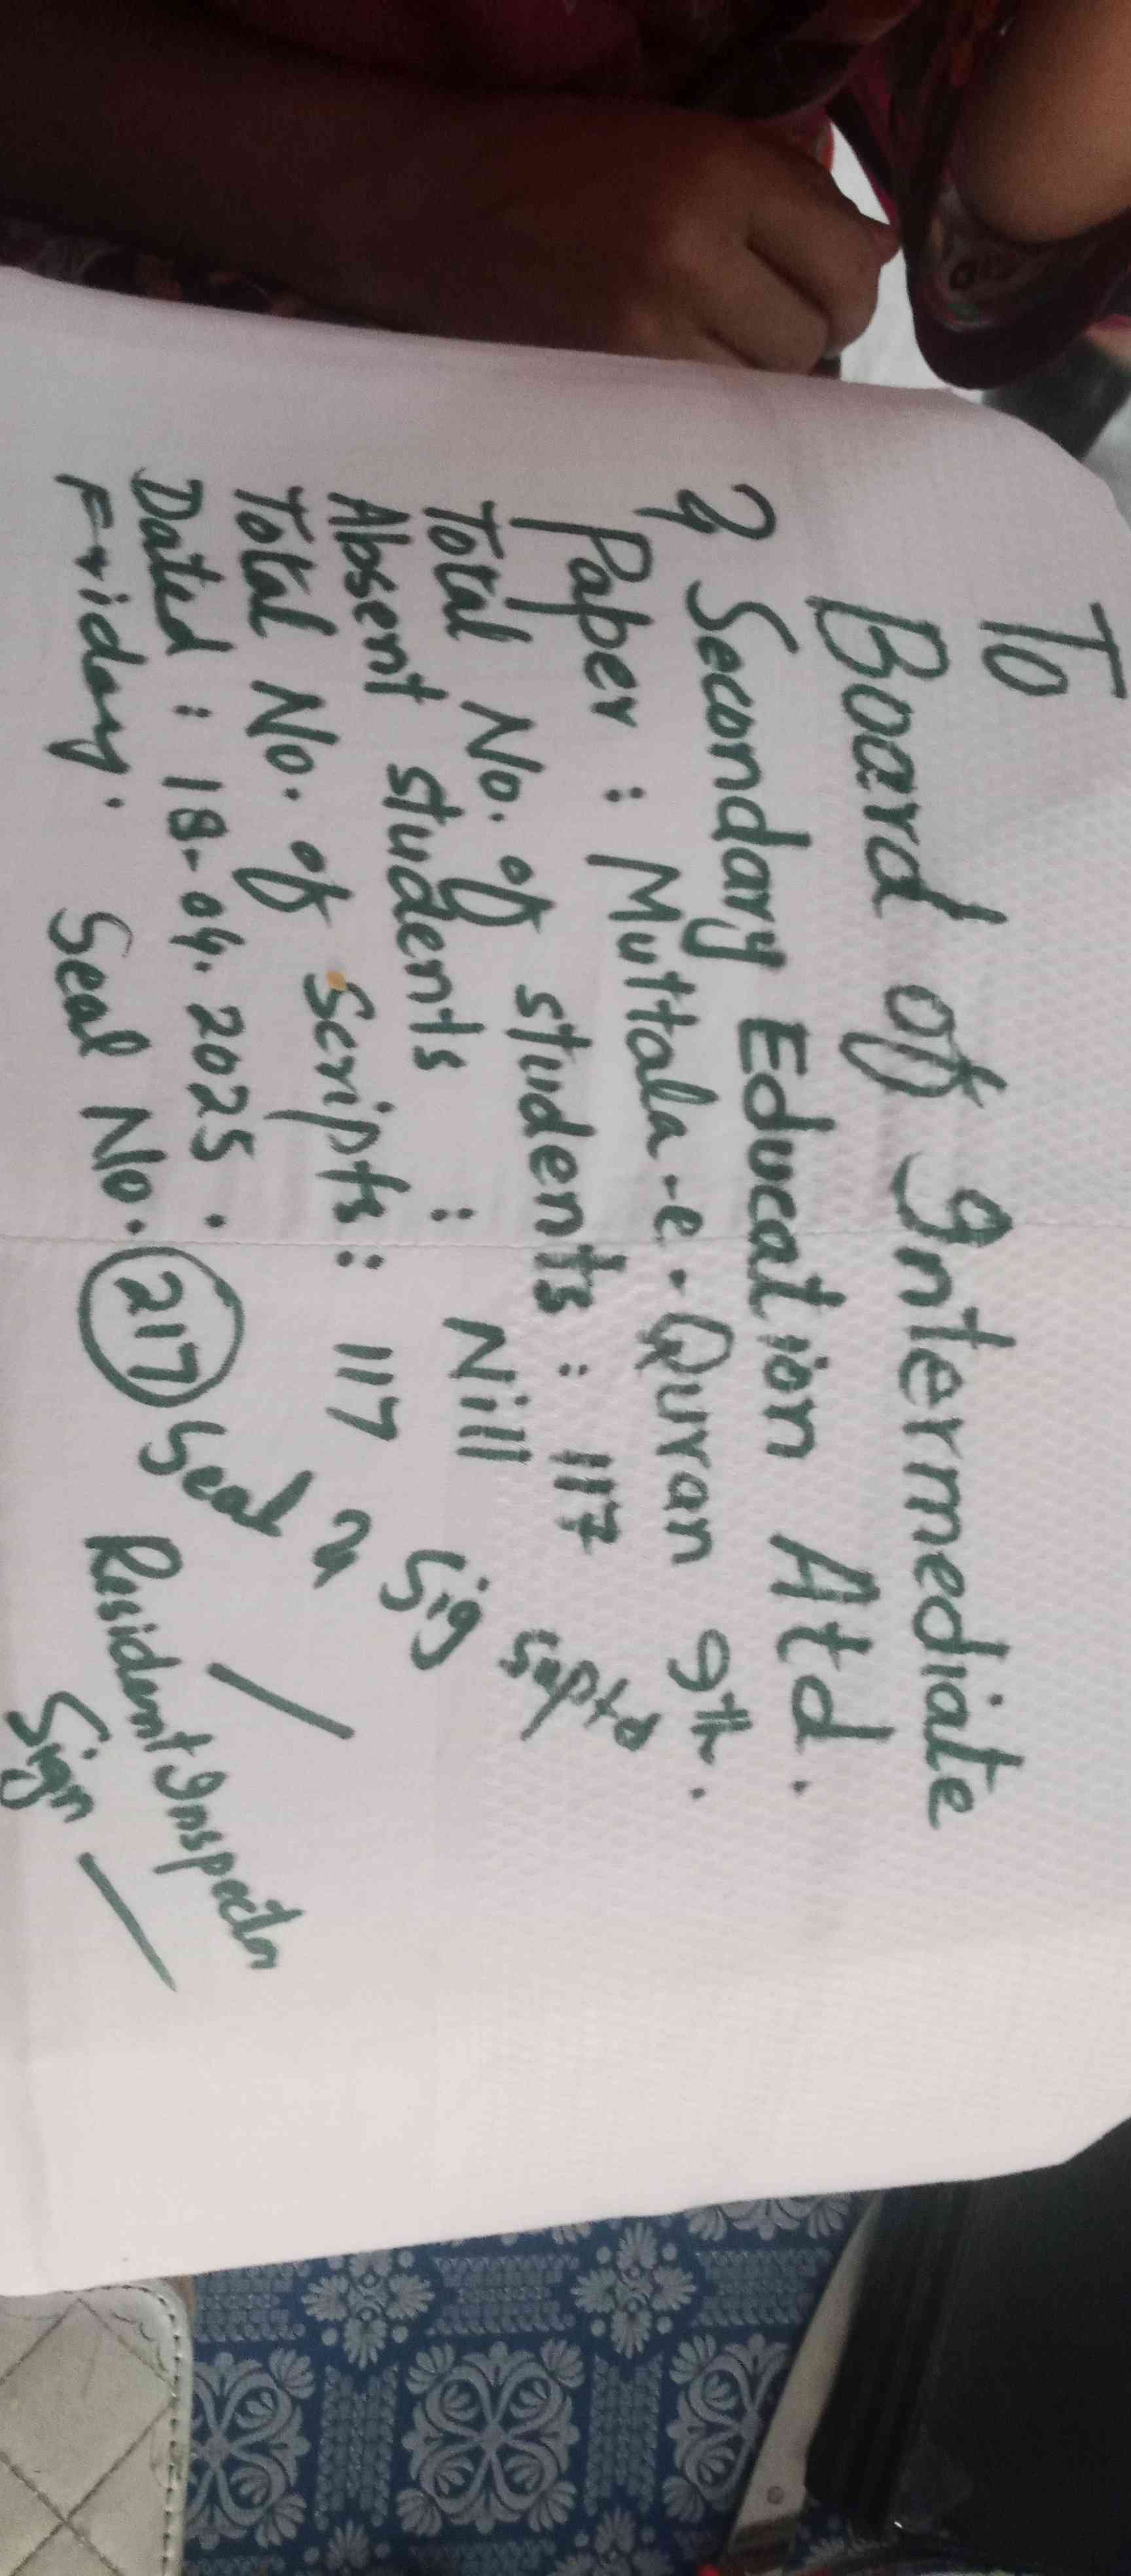 To
Board of Intermediate
& Secondary Education Atd.
Paper : Muttala-e-Quran 9th.
Total No. of students : 117
Absent students : Nill
Total No. of Scripts : 117
Dated : 18-04. 2025.
Friday. Seal No. 217
Seal & Sig Suptd
Resident Inspector
Sign